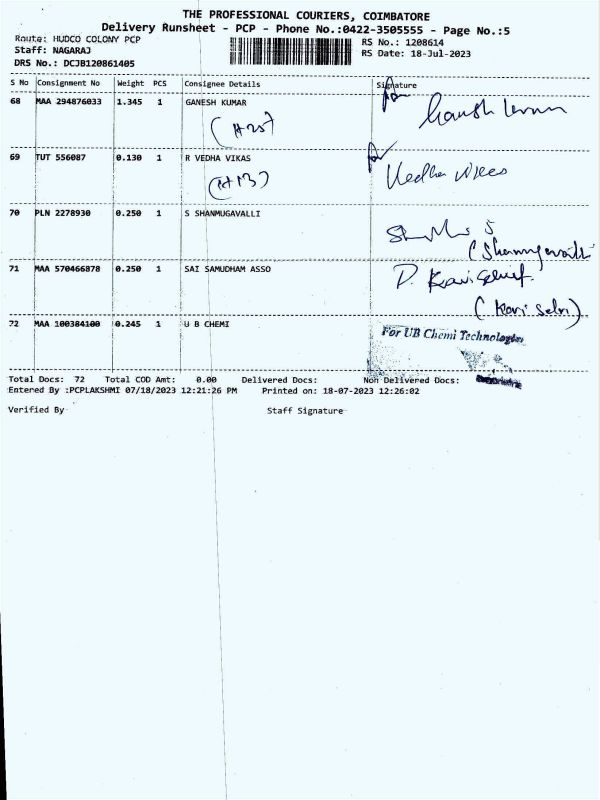 THE PROFESSIONAL COURIERS, COIMBATORE
Delivery Runsheet - PCP - Phone No.:0422-3505555 - Page No.:5
Route: HUDCO COLONY PCP
Staff: NAGARAJ
DRS No.: DCJB120861405
RS No.: 1208614
RS Date: 18-Jul-2023
S No Consignment No Weight PCS Consignee Details Signature
68 MAA 294876033 1.345 1 GANESH KUMAR
69 TUT 556087 0.130 1 R VEDHA VIKAS
Vedha Vikas
70 PLN 2278930 0.250 1 S SHANMUGAVALLI
71 MAA 570466878 0.250 1 SAI SAMUDHAM ASSO
(Kavi Selvi)
72 MAA 100384100 0.245 1 U B CHEMI
For UB Chemi Technologies
Total Docs: 72 Total COD Amt: 0.00 Delivered Docs: Non Delivered Docs:
Entered By :PCPLAKSHMI 07/18/2023 12:21:26 PM Printed on: 18-07-2023 12:26:02
Verified By Staff Signature